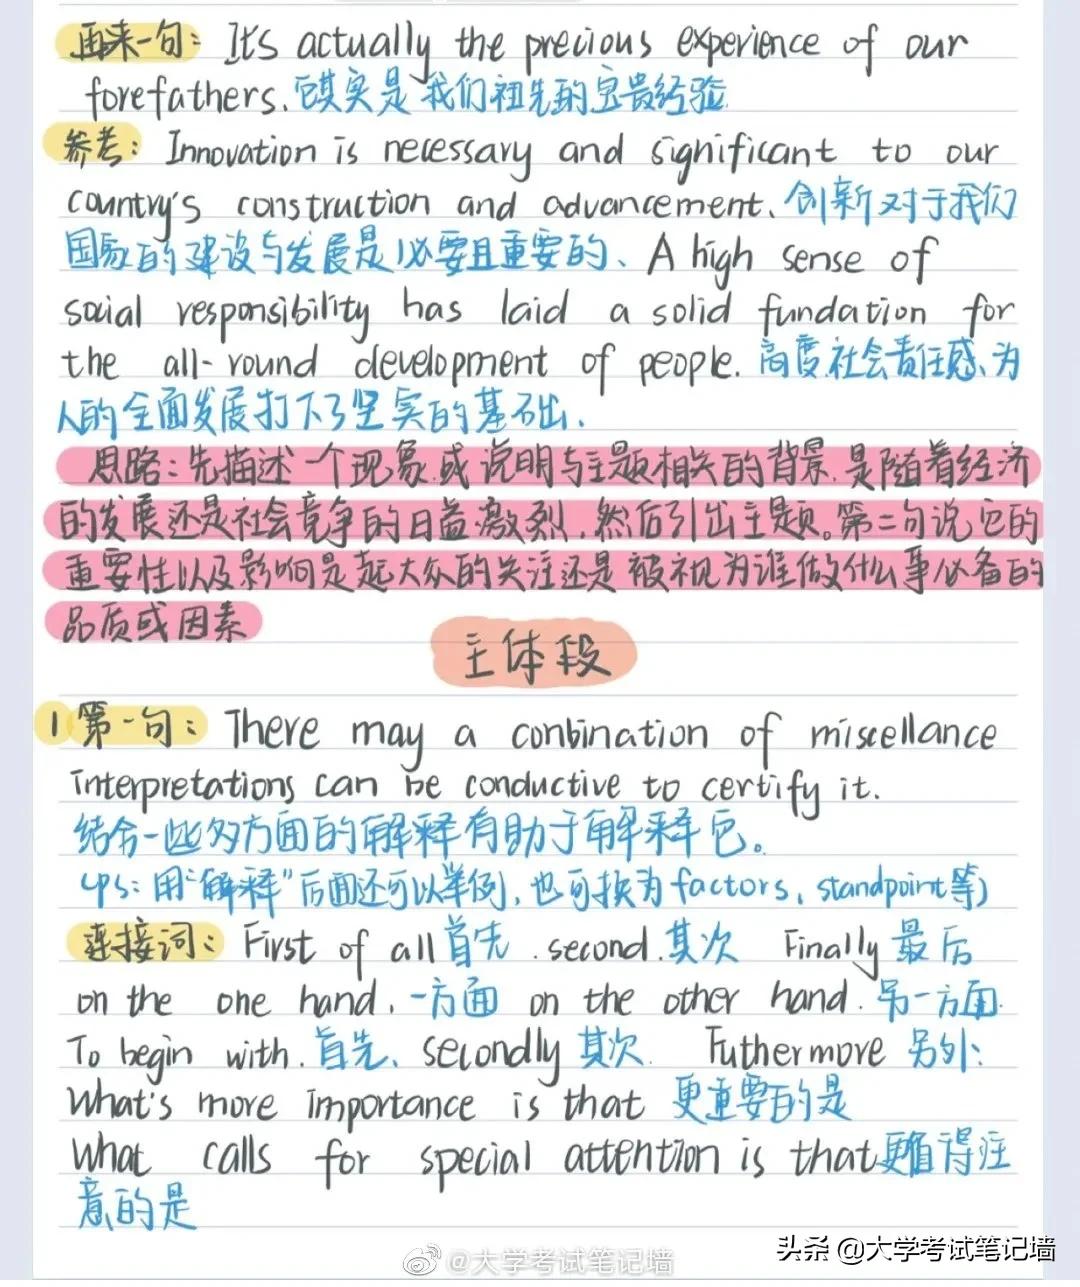 再来一句: It's actually the precious experience of our
forefathers. 它其实是我们祖先的宝贵经验
参考: Innovation is necessary and significant to our
country's construction and advancement. 创新对于我们
国家的建设与发展是必要且重要的、A high sense of
social responsibility has laid a solid fundation for
the all-round development of people. 高度社会责任感、为
人的全面发展打下了坚实的基础.
思路:先描述一个现象.或说明与主题相关的背景.是随着经济
的发展还是社会竞争的日益激烈.然后引出主题。第二句说它的
重要性以及影响是起大众的关注还是被视为谁做什么事必备的
品质或因素
主体段
1 第一句: There may a conbination of miscellance
interpretations can be conductive to certify it.
结合一些多方面的解释有助于解释它。
(ps: 用"解释"后面还可以举例, 也可换为factors, standpoint等)
连接词: First of all 首先 . second. 其次 Finally 最后
on the one hand. 一方面 on the other hand. 另一方面.
To begin with. 首先、secondly 其次. Futhermore 另外:
What's more importance is that 更重要的是
What calls for special attention is that 更值得注
意的是
@大学考试笔记墙
头条 @大学考试笔记墙